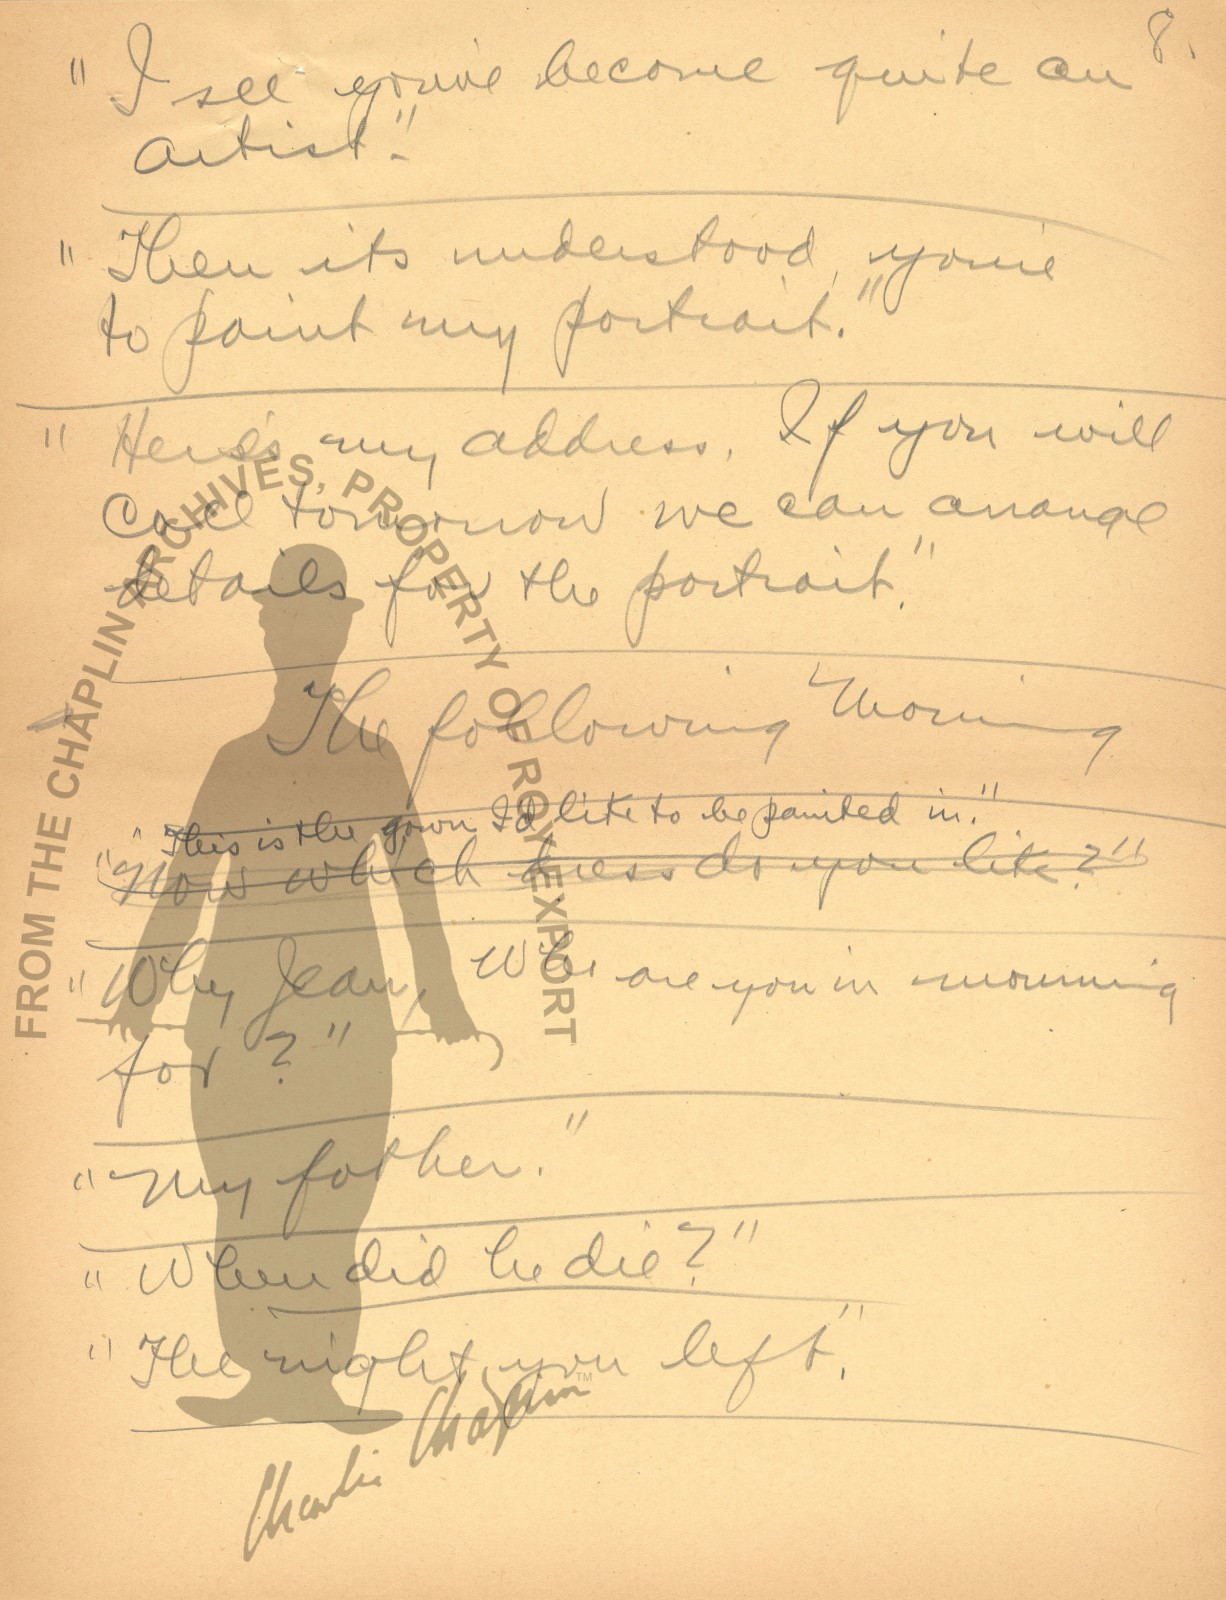 8.
"I see you've become quite an
artist."
"Then its understood, you're
to paint my portrait."
"Here's my address. If you will
call tomorrow we can arrange
details for the portrait."
The following Morning
"This is the gown I'd like to be painted in."
"Now which dress do you like?"
"Why Jean, Who are you in mourning
for?"
"My father."
"When did he die?"
"The night you left."
FROM THE CHAPLIN ARCHIVES, PROPERTY OF ROY EXPORT
Charlie Chaplin TM